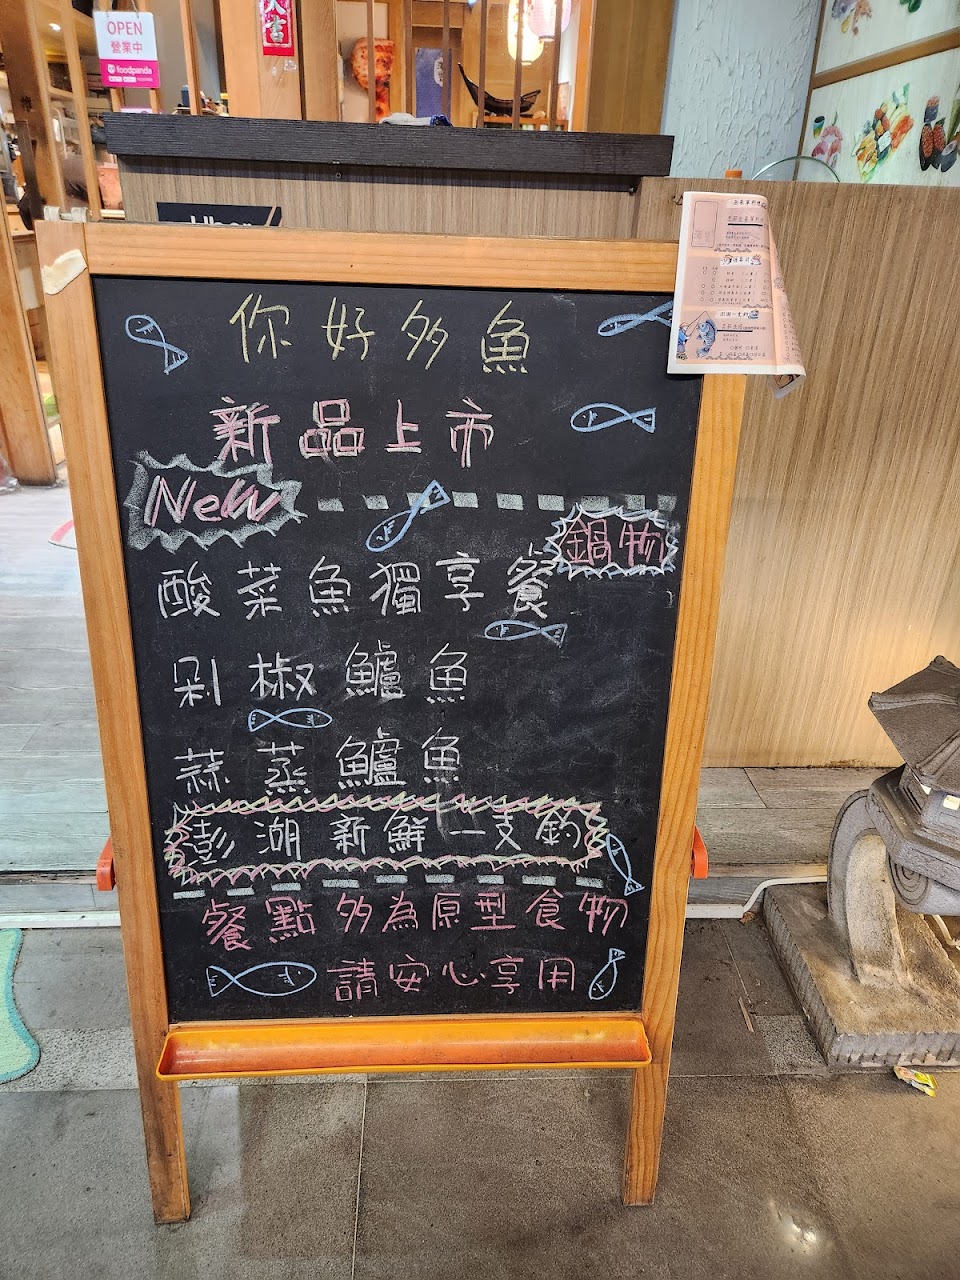 OPEN
營業中
foodpanda
大吉
Uber
你好多魚
新品上市
New
鍋物
酸菜魚獨享餐
剁椒鱸魚
蒜蒸鱸魚
澎湖新鮮一支釣
餐點多為原型食物
請安心享用